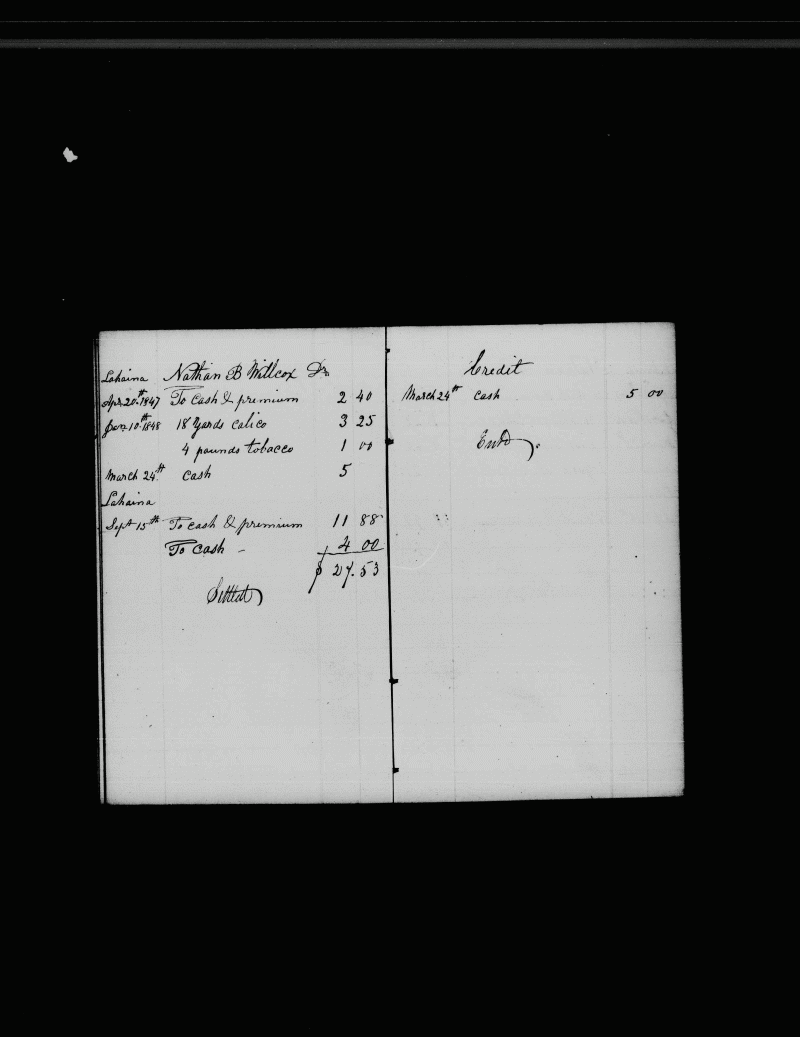 Lahaina Nathan B Willcox Dr
Apr. 20th 1847 To cash & premium 2 40
Jan 10th 1848 18 Yards calico 3 25
4 pounds tobacco 1 00
March 24th cash 5
Lahaina
Sept 15th To cash & premium 11 88
To cash - 4 00
$ 27.53
Settled
Credit
March 24th cash 5 00